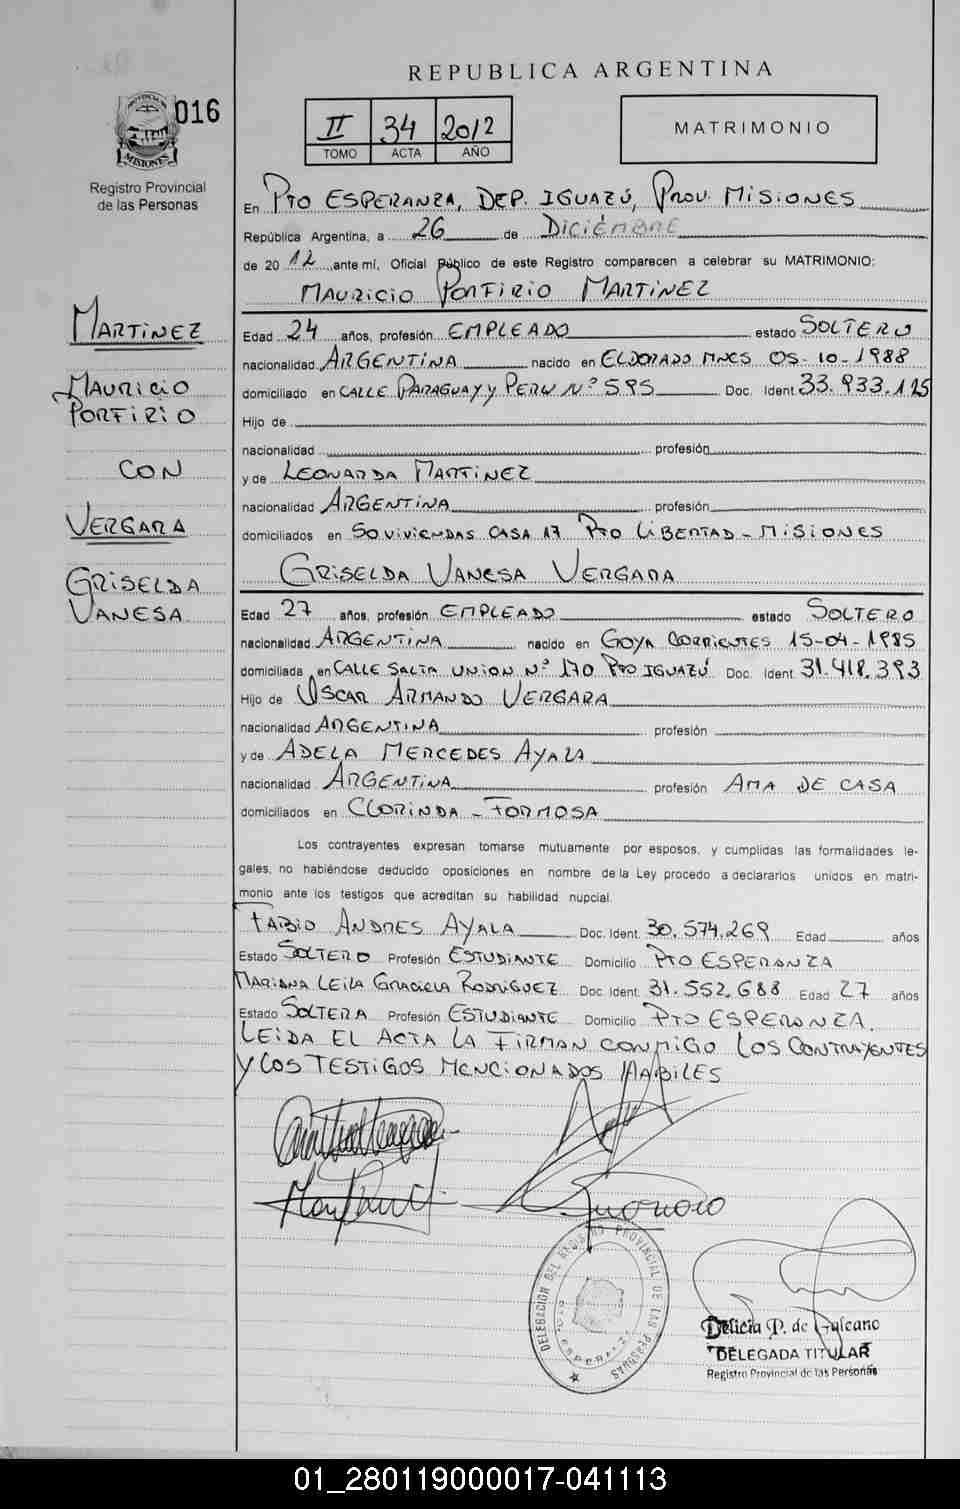 REPUBLICA ARGENTINA
016
II 34 2012
TOMO ACTA AÑO
MATRIMONIO
PROVINCIA DE
MISIONES
Registro Provincial
de las Personas
En Pto ESPERANZA, DEP. IGUAZÚ, PROV. MISIONES
República Argentina, a 26 de DICIEMBRE
de 2012, ante mí, Oficial Público de este Registro comparecen a celebrar su MATRIMONIO:
MAURICIO PORFIRIO MARTINEZ
MARTINEZ
MAURICIO
PORFIRIO
CON
VERGARA
GRISELDA
VANESA
Edad 24 años, profesión EMPLEADO estado SOLTERO
nacionalidad ARGENTINA nacido en ELDORADO MNES 05-10-1988
domiciliado en CALLE PARAGUAY y PERU Nº 595 Doc. Ident. 33.933.125
Hijo de
nacionalidad profesión
y de LEONARDA MARTINEZ
nacionalidad ARGENTINA profesión
domiciliados en 50 VIVIENDAS CASA 17 Pto LIBERTAD - MISIONES
GRISELDA VANESA VERGARA
Edad 27 años, profesión EMPLEADO estado SOLTERO
nacionalidad ARGENTINA nacido en GOYA CORRIENTES 15-04-1985
domiciliada en CALLE SALTA UNION Nº 170 Pto IGUAZÚ Doc. Ident. 31.418.393
Hijo de OSCAR ARMANDO VERGARA
nacionalidad ARGENTINA profesión
y de ADELA MERCEDES AYALA
nacionalidad ARGENTINA profesión AMA DE CASA
domiciliados en CLORINDA - FORMOSA
Los contrayentes expresan tomarse mutuamente por esposos, y cumplidas las formalidades le-
gales, no habiéndose deducido oposiciones en nombre de la Ley procedo a declararlos unidos en matri-
monio ante los testigos que acreditan su habilidad nupcial.
FABIO ANDRES AYALA Doc. Ident. 30.574.269 Edad años
Estado SOLTERO Profesión ESTUDIANTE Domicilio PTO ESPERANZA
MARIANA LEILA GRACIELA RODRIGUEZ Doc. Ident. 31.552.688 Edad 27 años
Estado SOLTERA Profesión ESTUDIANTE Domicilio PTO ESPERANZA.
LEIDA EL ACTA LA FIRMAN CONMIGO LOS CONTRAYENTES
Y LOS TESTIGOS MENCIONADOS HABILES
DELEGACION DEL REGISTRO PROVINCIAL DE LAS PERSONAS
Delicia P. de Galeano
DELEGADA TITULAR
Registro Provincial de las Personas
01_280119000017-041113